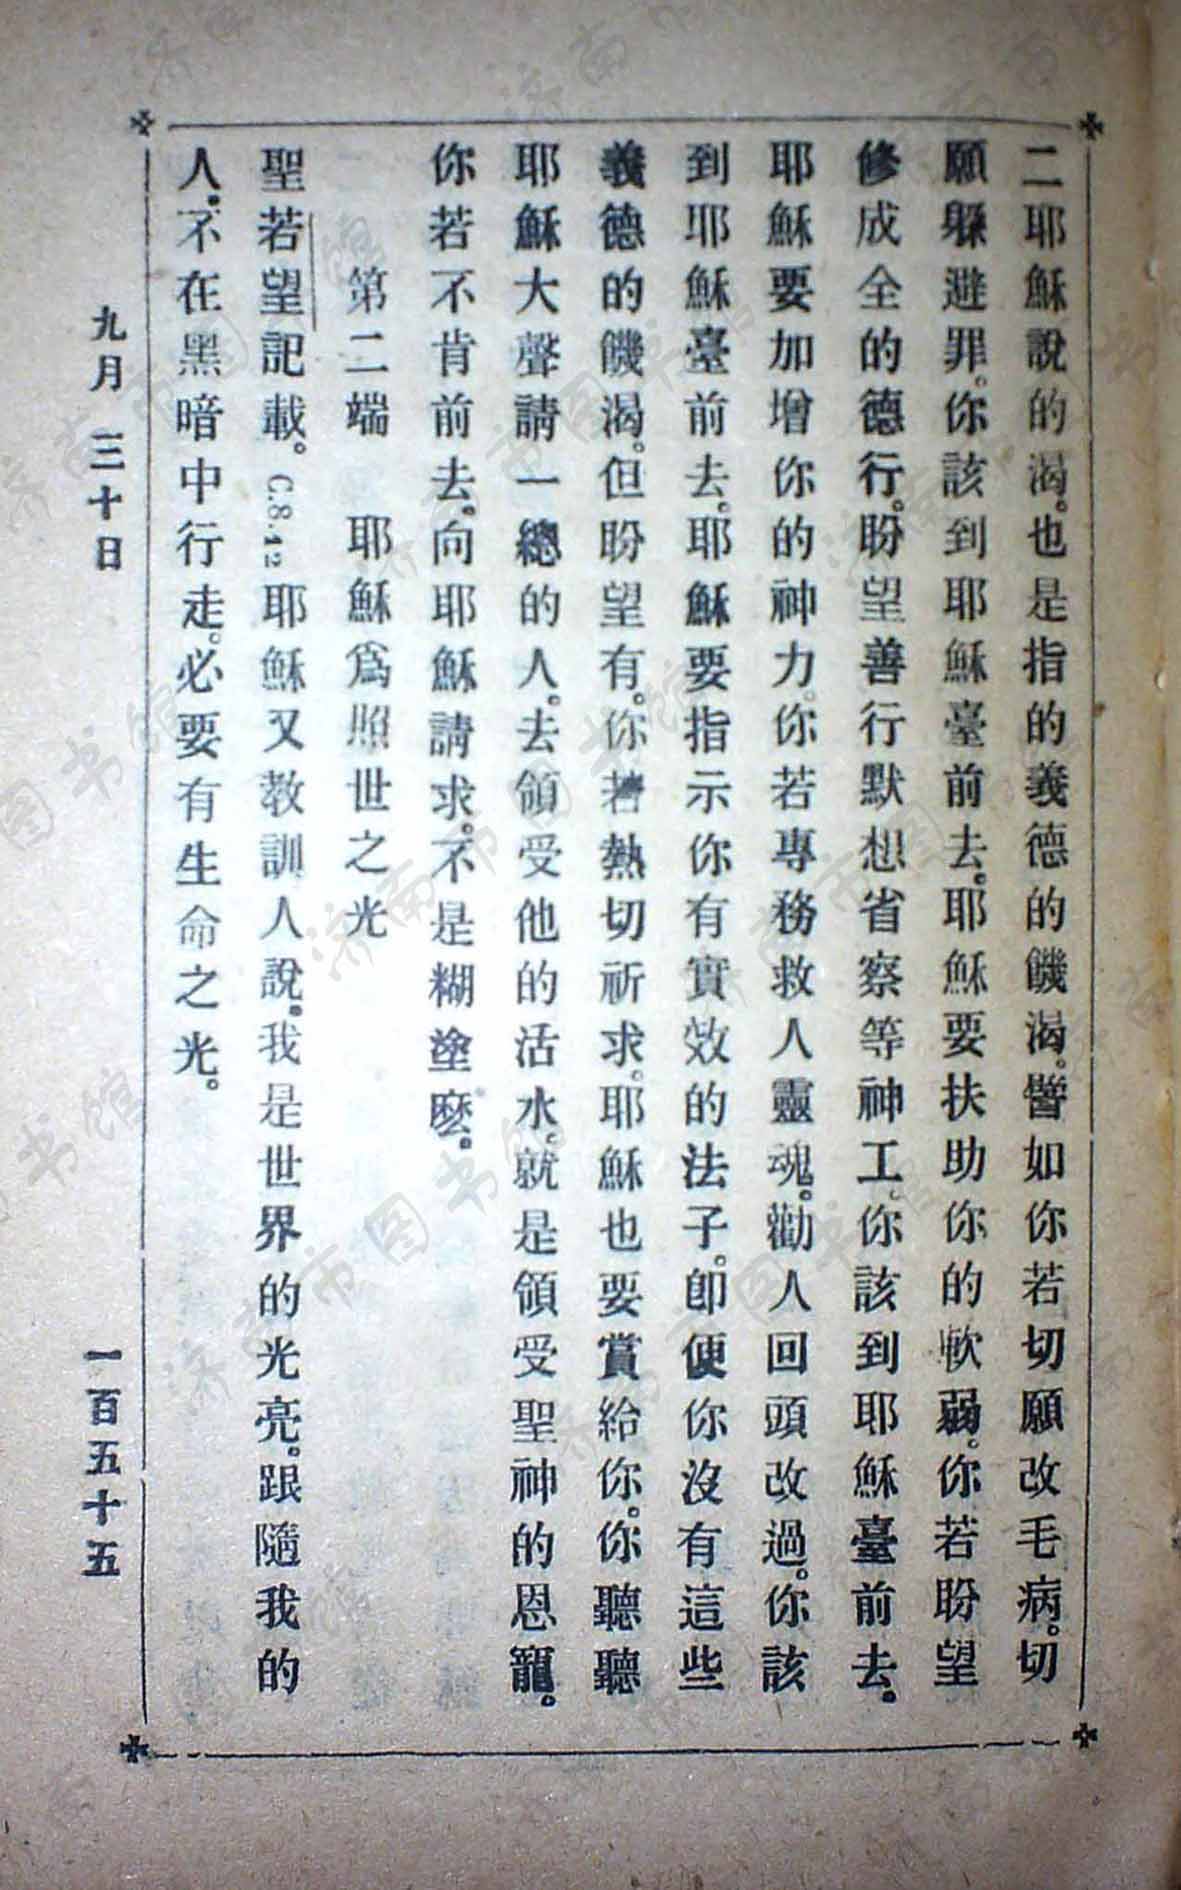 二耶穌說的渴。也是指的義德的饑渴。譬如你若切願改毛病。切
願躲避罪。你該到耶穌臺前去。耶穌要扶助你的軟弱。你若盼望
修成全的德行。盼望善行默想省察等神工。你該到耶穌臺前去。
耶穌要加增你的神力。你若專務救人靈魂。勸人回頭改過。你該
到耶穌臺前去。耶穌要指示你有實效的法子。卽便你沒有這些
義德的饑渴。但盼望有。你若熱切祈求。耶穌也要賞給你。你聽聽
耶穌大聲請一總的人。去領受他的活水。就是領受聖神的恩寵。
你若不肯前去。向耶穌請求。不是糊塗麽。
第二端 耶穌爲照世之光
聖若望記載。C.8.12耶穌又教訓人說。我是世界的光亮。跟隨我的
人。不在黑暗中行走。必要有生命之光。
九月 三十日 一百五十五
济南市图书馆